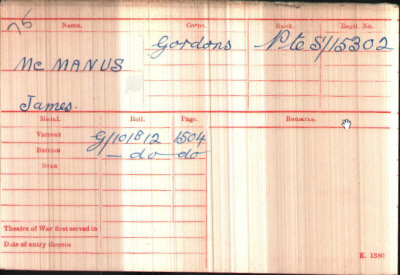 76
Name. Corps. Rank. Regtl. No.
Gordons Pte S/15302
Mc MANUS
James.
Medal. Roll. Page. Remarks.
Victory G/101B12 1504
British - do - do -
Star
Theatre of War first served in
Date of entry therein
K. 1380